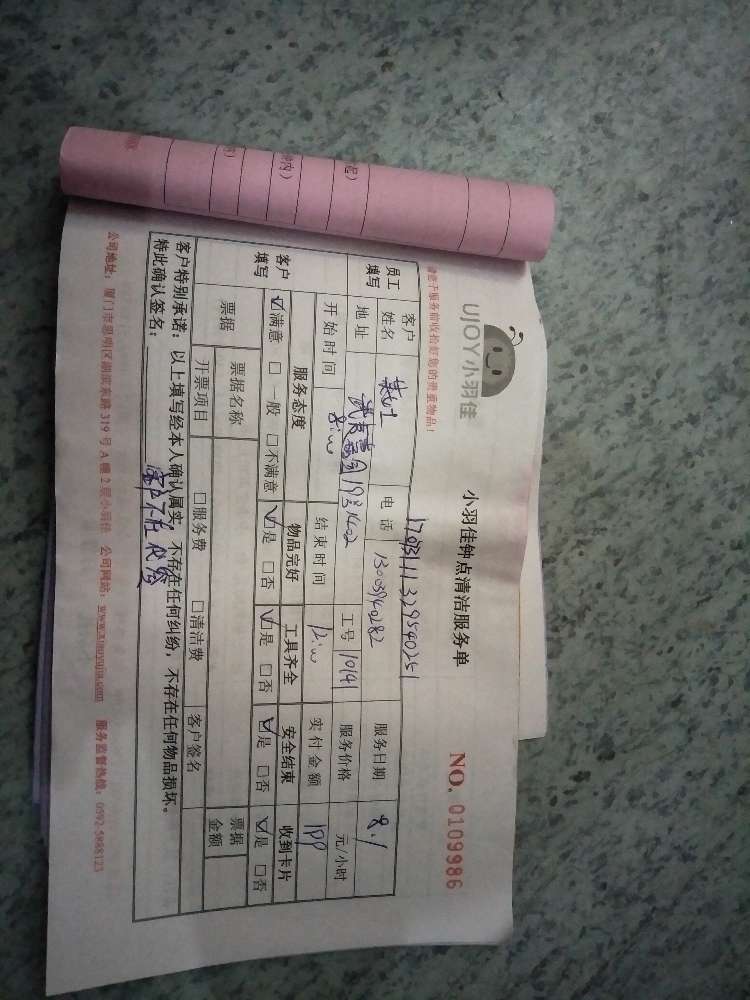 UJOY小羽佳
小羽佳钟点清洁服务单
NO. 0109986
请您于服务前收检好您的贵重物品!
员工填写
客户姓名
电话 13003940282
服务日期 8.1
地址
193 1402
工号 10141
服务价格 元/小时
开始时间
结束时间
实付金额
客户填写
服务态度 物品完好 工具齐全 安全结束 收到卡片
☑满意 □一般 □不满意 ☑是 □否 ☑是 □否 ☑是 □否 ☑是 □否
票据 票据名称 票据金额
开票项目 □服务费 □清洁费 客户签名
客户特别承诺:以上填写经本人确认属实,不存在任何纠纷,不存在任何物品损坏。
特此确认签名: 客户不在 代签
公司地址:厦门市思明区湖滨东路319号A幢2层小羽佳 公司网站:www.xiaoyujia.com 服务监督热线:0592-5888123